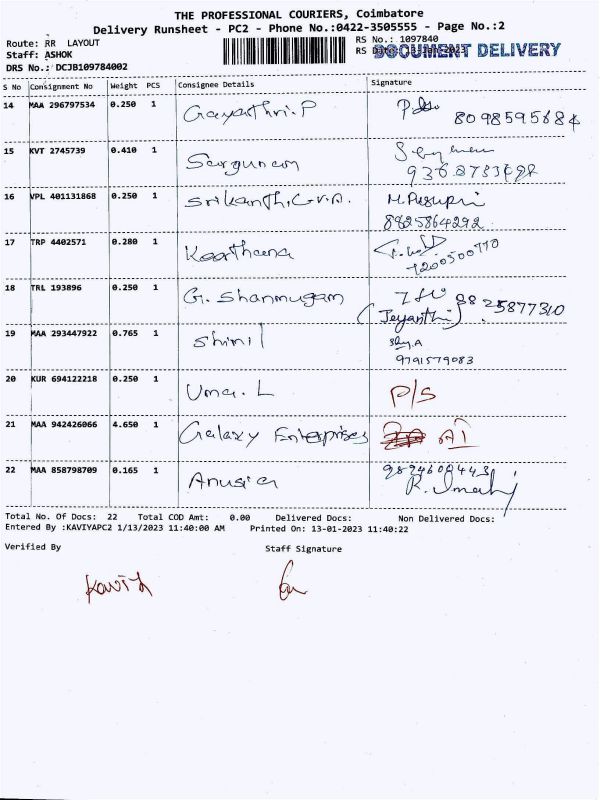 THE PROFESSIONAL COURIERS, Coimbatore
Delivery Runsheet - PC2 - Phone No.:0422-3505555 - Page No.:2
Route: RR LAYOUT
RS No.: 1097840
Staff: ASHOK
DOCUMENT DELIVERY
DRS No.: DCJB109784002
S No Consignment No Weight PCS Consignee Details Signature
14 MAA 296797534 0.250 1 Gayathri.P
8098595684
15 KVT 2745739 0.410 1 Sargunam
16 VPL 401131868 0.250 1 Srikanth.G.V.A.
8825864292
17 TRP 4402571 0.280 1 Keerthana
7200500770
18 TRL 193896 0.250 1 G. Shanmugam
8825877310
(Jeyanthi)
19 MAA 293447922 0.765 1 Shinil
9791579083
20 KUR 694122218 0.250 1 Uma. L P/S
21 MAA 942426066 4.650 1 Galaxy Enterprises
22 MAA 858798709 0.165 1 Anusia
Total No. Of Docs: 22 Total COD Amt: 0.00 Delivered Docs: Non Delivered Docs:
Entered By :KAVIYAPC2 1/13/2023 11:40:00 AM Printed On: 13-01-2023 11:40:22
Verified By Staff Signature